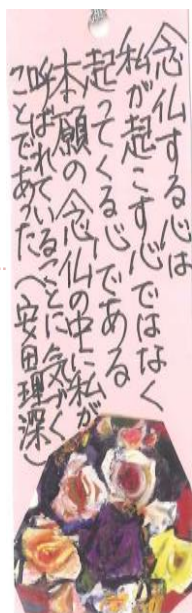 念仏する心は
私が起こす心ではなく
起ってくる心である
本願の念仏の中に私が
呼ばれていることに気づく
ことであった(安田理深)